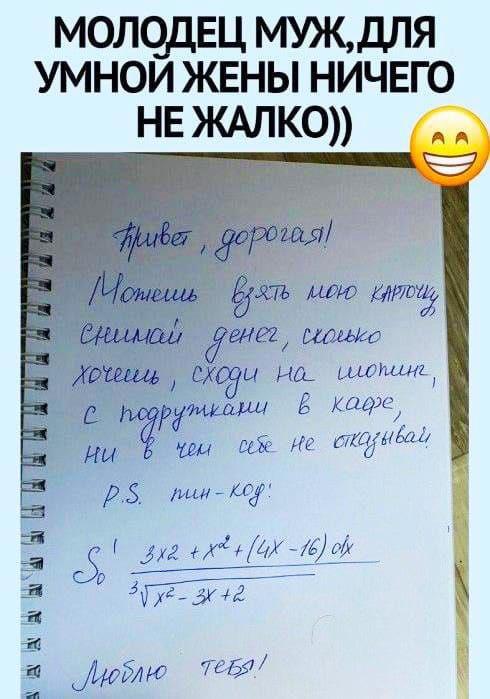 МОЛОДЕЦ МУЖ, ДЛЯ
УМНОЙ ЖЕНЫ НИЧЕГО
НЕ ЖАЛКО))
Привет, дорогая!
Можешь взять мою карточку,
снимай денег, сколько
хочешь, сходи на шопинг,
с подружками в кафе,
ни в чем себе не отказывай
P.S. пин-код:
∫₀¹ 3x2 + x² + (4x - 16) dx
∛x² - 3x + 2
Люблю тебя!